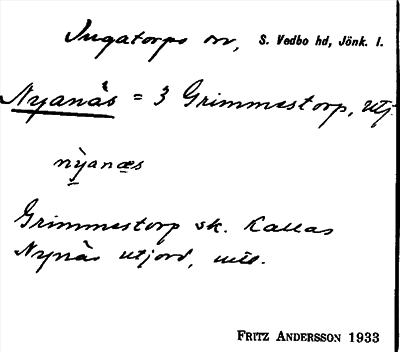 Ingatorps sn, S. Vedbo hd, Jönk. l.
Nyanäs = 3 Grimmestorp, utj.
nỳanæs
Grimmestorp sk. kallas
Nynäs utjord,
FRITZ ANDERSSON 1933